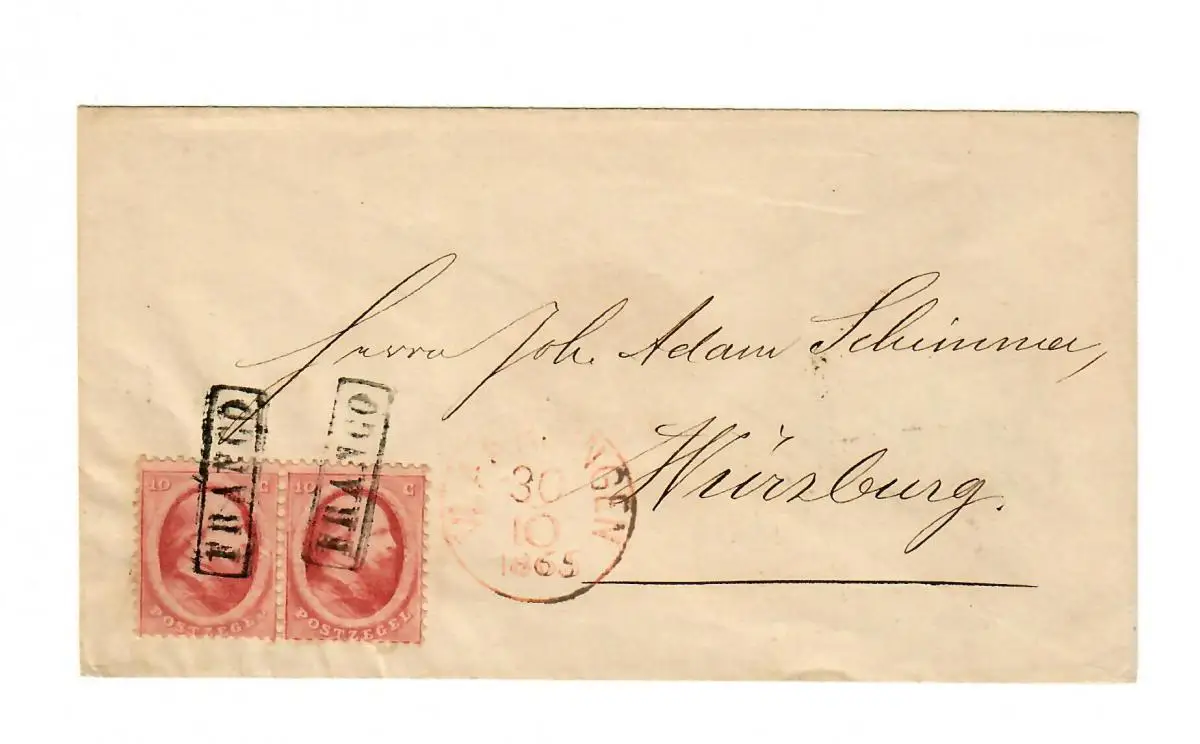 Herrn Joh. Adam Schimmer,
Würzburg.
FRANCO
FRANCO
10 C
10 C
POSTZEGEL
POSTZEGEL
30
10
1865